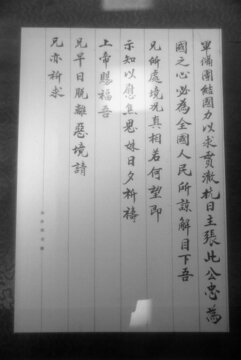 準備團結國力以求貫澈抗日主張此公忠為
國之心必為全國人民所諒解目下吾
兄所處境況真相若何望即
示知以慰焦思妹日夕祈禱
上帝賜福吾
兄早日脫離惡境請
兄亦祈求